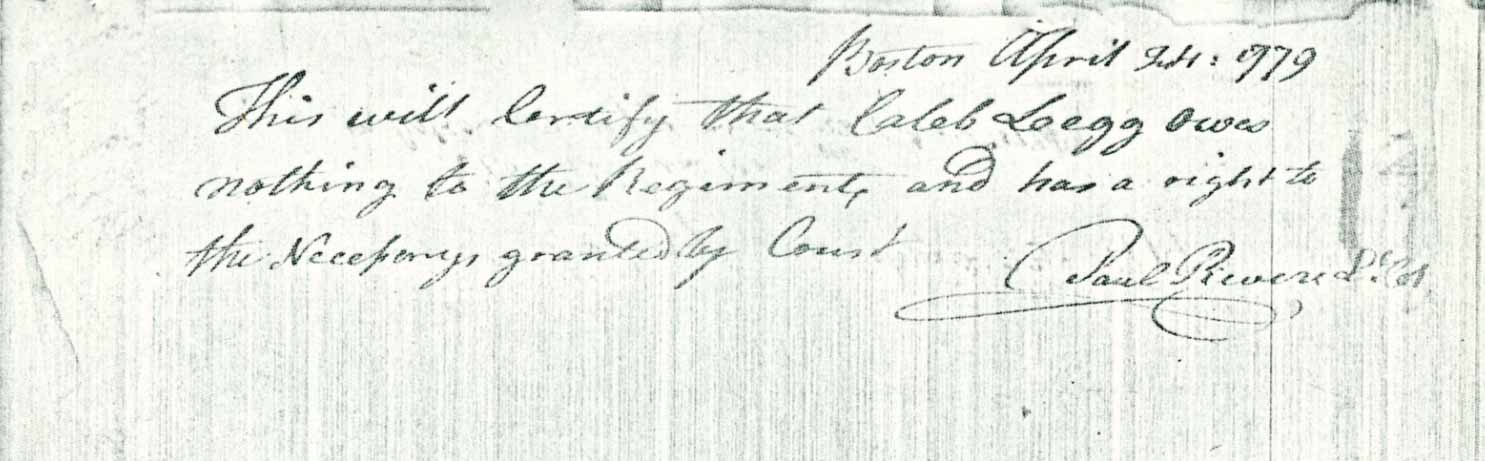 Boston April 24: 1779
This will Certify that Caleb Legg owes
nothing to the Regiment, and has a right to
the Necessarys granted by Court
Paul Revere Lt. Col.